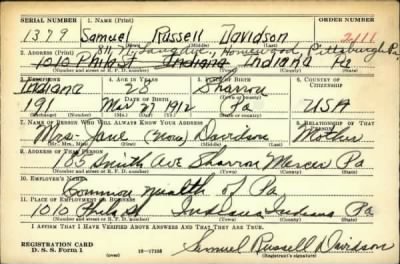 SERIAL NUMBER 1. NAME (Print) ORDER NUMBER
1379 Samuel Russell Davidson 2611
(First) (Middle) (Last)
2. ADDRESS (Print) 811 N. Homewood, Pittsburgh Pa.
1010 Phila St Indiana Indiana Pa
3. TELEPHONE 4. AGE IN YEARS 5. PLACE OF BIRTH 6. COUNTRY OF CITIZENSHIP
Indiana 28 Sharon
DATE OF BIRTH
191 Mar 27 1912 Pa USA
(Exchange) (Number) (Mo.) (Day) (Yr.) (State or country)
7. NAME OF PERSON WHO WILL ALWAYS KNOW YOUR ADDRESS 8. RELATIONSHIP OF THAT PERSON
Mrs. Jane (None) Davidson Mother
(Mr., Mrs., Miss) (First) (Middle) (Last)
9. ADDRESS OF THAT PERSON
185 Smith Ave Sharon Mercer Pa
(Number and street or R. F. D. number) (Town) (County) (State)
10. EMPLOYER'S NAME
Commonwealth of Pa
11. PLACE OF EMPLOYMENT OR BUSINESS
1010 Phila St Indiana Indiana Pa
(Number and street or R. F. D. number) (Town) (County) (State)
I AFFIRM THAT I HAVE VERIFIED ABOVE ANSWERS AND THAT THEY ARE TRUE.
REGISTRATION CARD
D. S. S. Form 1 (over) 16—17105 Samuel Russell Davidson
(Registrant's signature)